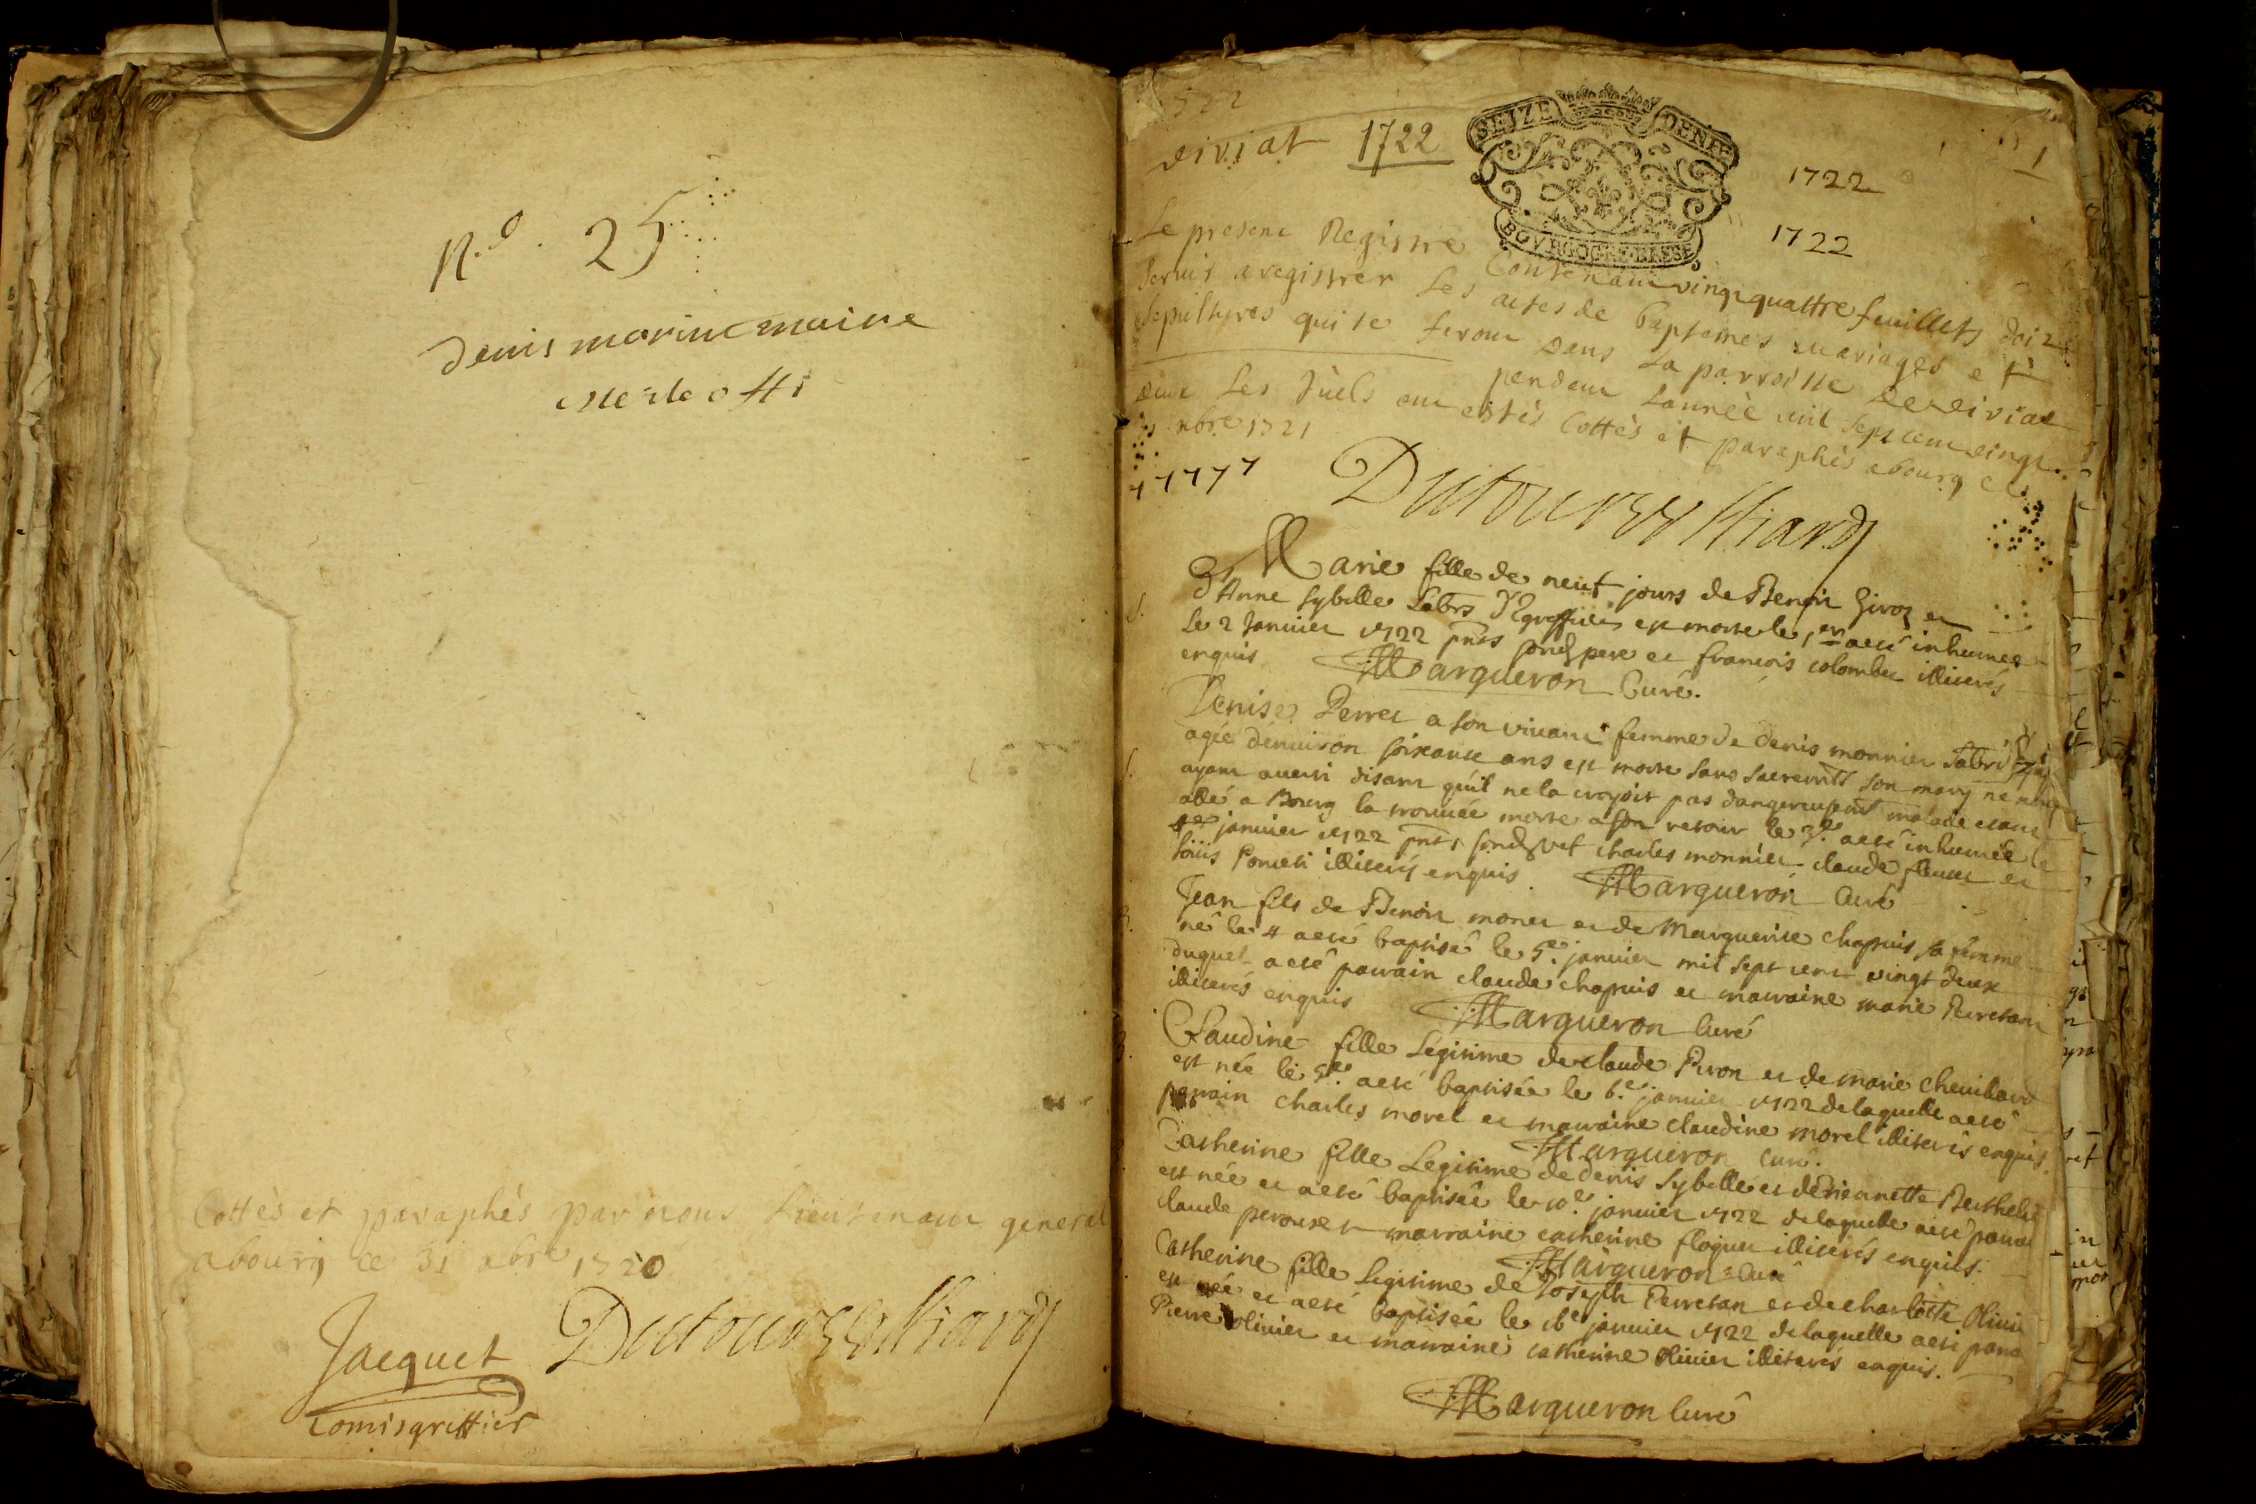 N.o 25
Denis morin maire
Cottès et paraphès par nous Lieutenant general
abourg ce 31 xbre 1720
Jacquet Dutour Vuilliard
Comis greffier
viriat 1722
SEIZE DENIE
BOVRGOGNE·BRESSE
1
1722
1722
Le present Registre Contenant vingt quattre feuillets doit
servir a registrer Les actes de baptemes mariages et
sepultures qui se feront dans La parroisse de viriat
pendant Lannée mil sept cent vingt
deux Les quels ont estés Cottès et paraphès abourg ce
xbre 1721
Dutour Vuilliard
Marie fille de neuf jours de Benoit Giroz et
d'Anne Sybille est morte le 1er a eté inhumée
Le 2 Janvier 1722 pnts sond pere et françois colomber illiterés
enquis Margueron Curé.
Denise Perret a son vivant femme de denis monnier
agée d'enuiron soixante ans est morte sans sacremnts son mary ne
ayant auerti disant qu'il ne la croyoit pas dangereusemt malade etant
allé a Bourg la trouuée morte a son retour le 3e a eté inhumée le
4e januier 1722 pnts charles monnier claude et
illiterés enquis Margueron Curé
Jean fils de Benoit monet et de Marguerite chapuis sa femme
né le 4 a eté baptisé le 5e januier mil sept cent vingt deux
duquel a eté parrain claude chapuis et marraine marie Perretant
illiterés enquis Margueron Curé
Claudine fille Légitime de claude Piron et de marie cheuillard
est née le 5e a eté baptisée le 6e januier 1722 de laquelle a eté
parrain charles morel et marraine claudine morel illiterés enquis
Margueron Curé.
Catherine fille Legitime de denis Sybille et de Pierrette Berthelet
est née et a eté baptisée le 10e januier 1722 de laquelle a eté parrai
claude peroux et marraine catherine floquet illiterés enquis.
Margueron Curé
Catherine fille Legitime de Joseph Perretan et de charlotte Oliuier
est née et a eté baptisée le 16e januier 1722 de laquelle a eté parra
Pierre oliuier et marraine catherine Oliuier illiterés enquis.
Margueron Curé